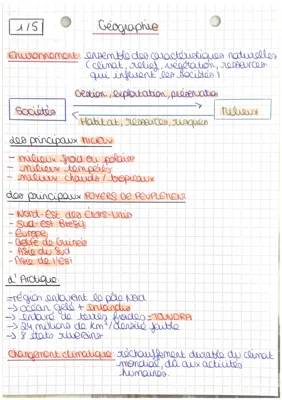 1/5
Géographie
Environnement: ensemble des caractéristiques naturelles
(climat, relief, végétation, ressources
qui influent les sociétés)
Gestion, exploitation, préservation
Sociétés
Milieux
Habitat, ressources, risques
Les principaux MILIEUX
- milieux froid ou polaire
- milieux tempérés
- milieux chauds / tropicaux
Les principaux FOYERS DE PEUPLEMENT
- Nord-Est des États-Unis
- Sud-Est Brésil
- Europe
- Golfe de Guinée
- Asie du Sud
- Asie de l'Est
L'Arctique
=région entourant le pôle Nord
→ océan gelé + inlandsis
→ entouré de terres froides = TOUNDRA
→ millions de km² / densité faible
→ 8 états riverains
Changement climatique: réchauffement durable du climat
mondiale, dû aux activités
humaines.